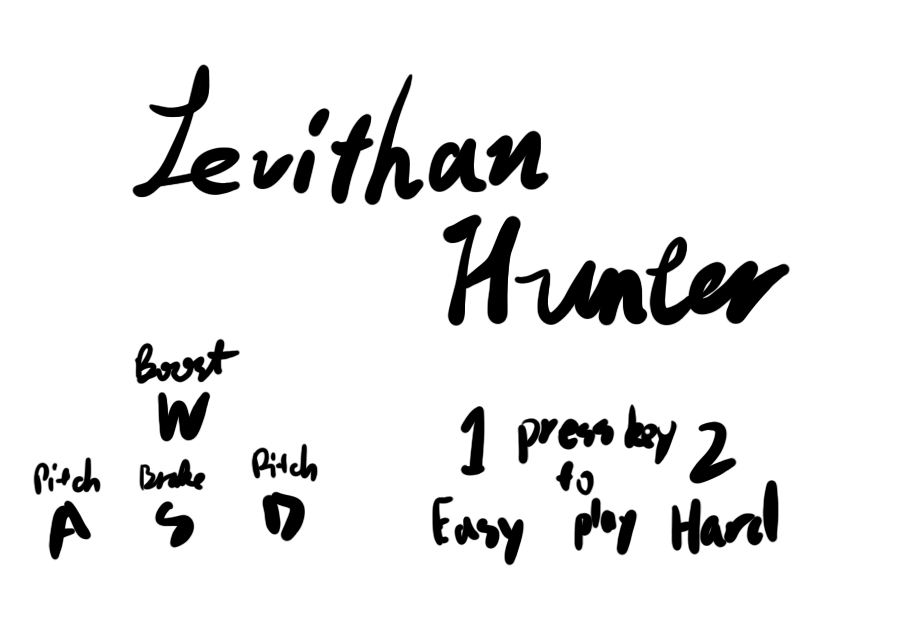 Levithan
Hunter
Boost
W
Pitch Brake Pitch
A S D
1 press key 2
to
Easy play Hard